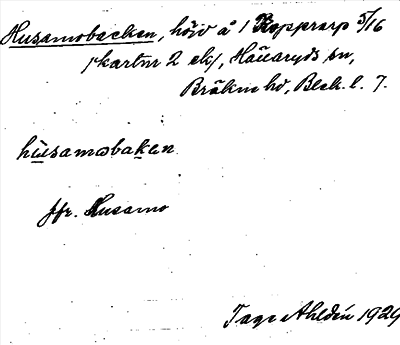 Husamobacken, höjd å 1 Kopprarp 5/16
/kartnr 2 ek/, Hällaryds sn,
Bräkne hd, Blek. l. 7.
husamobakən
Jfr. Husamo
Tage Ahldén 1929